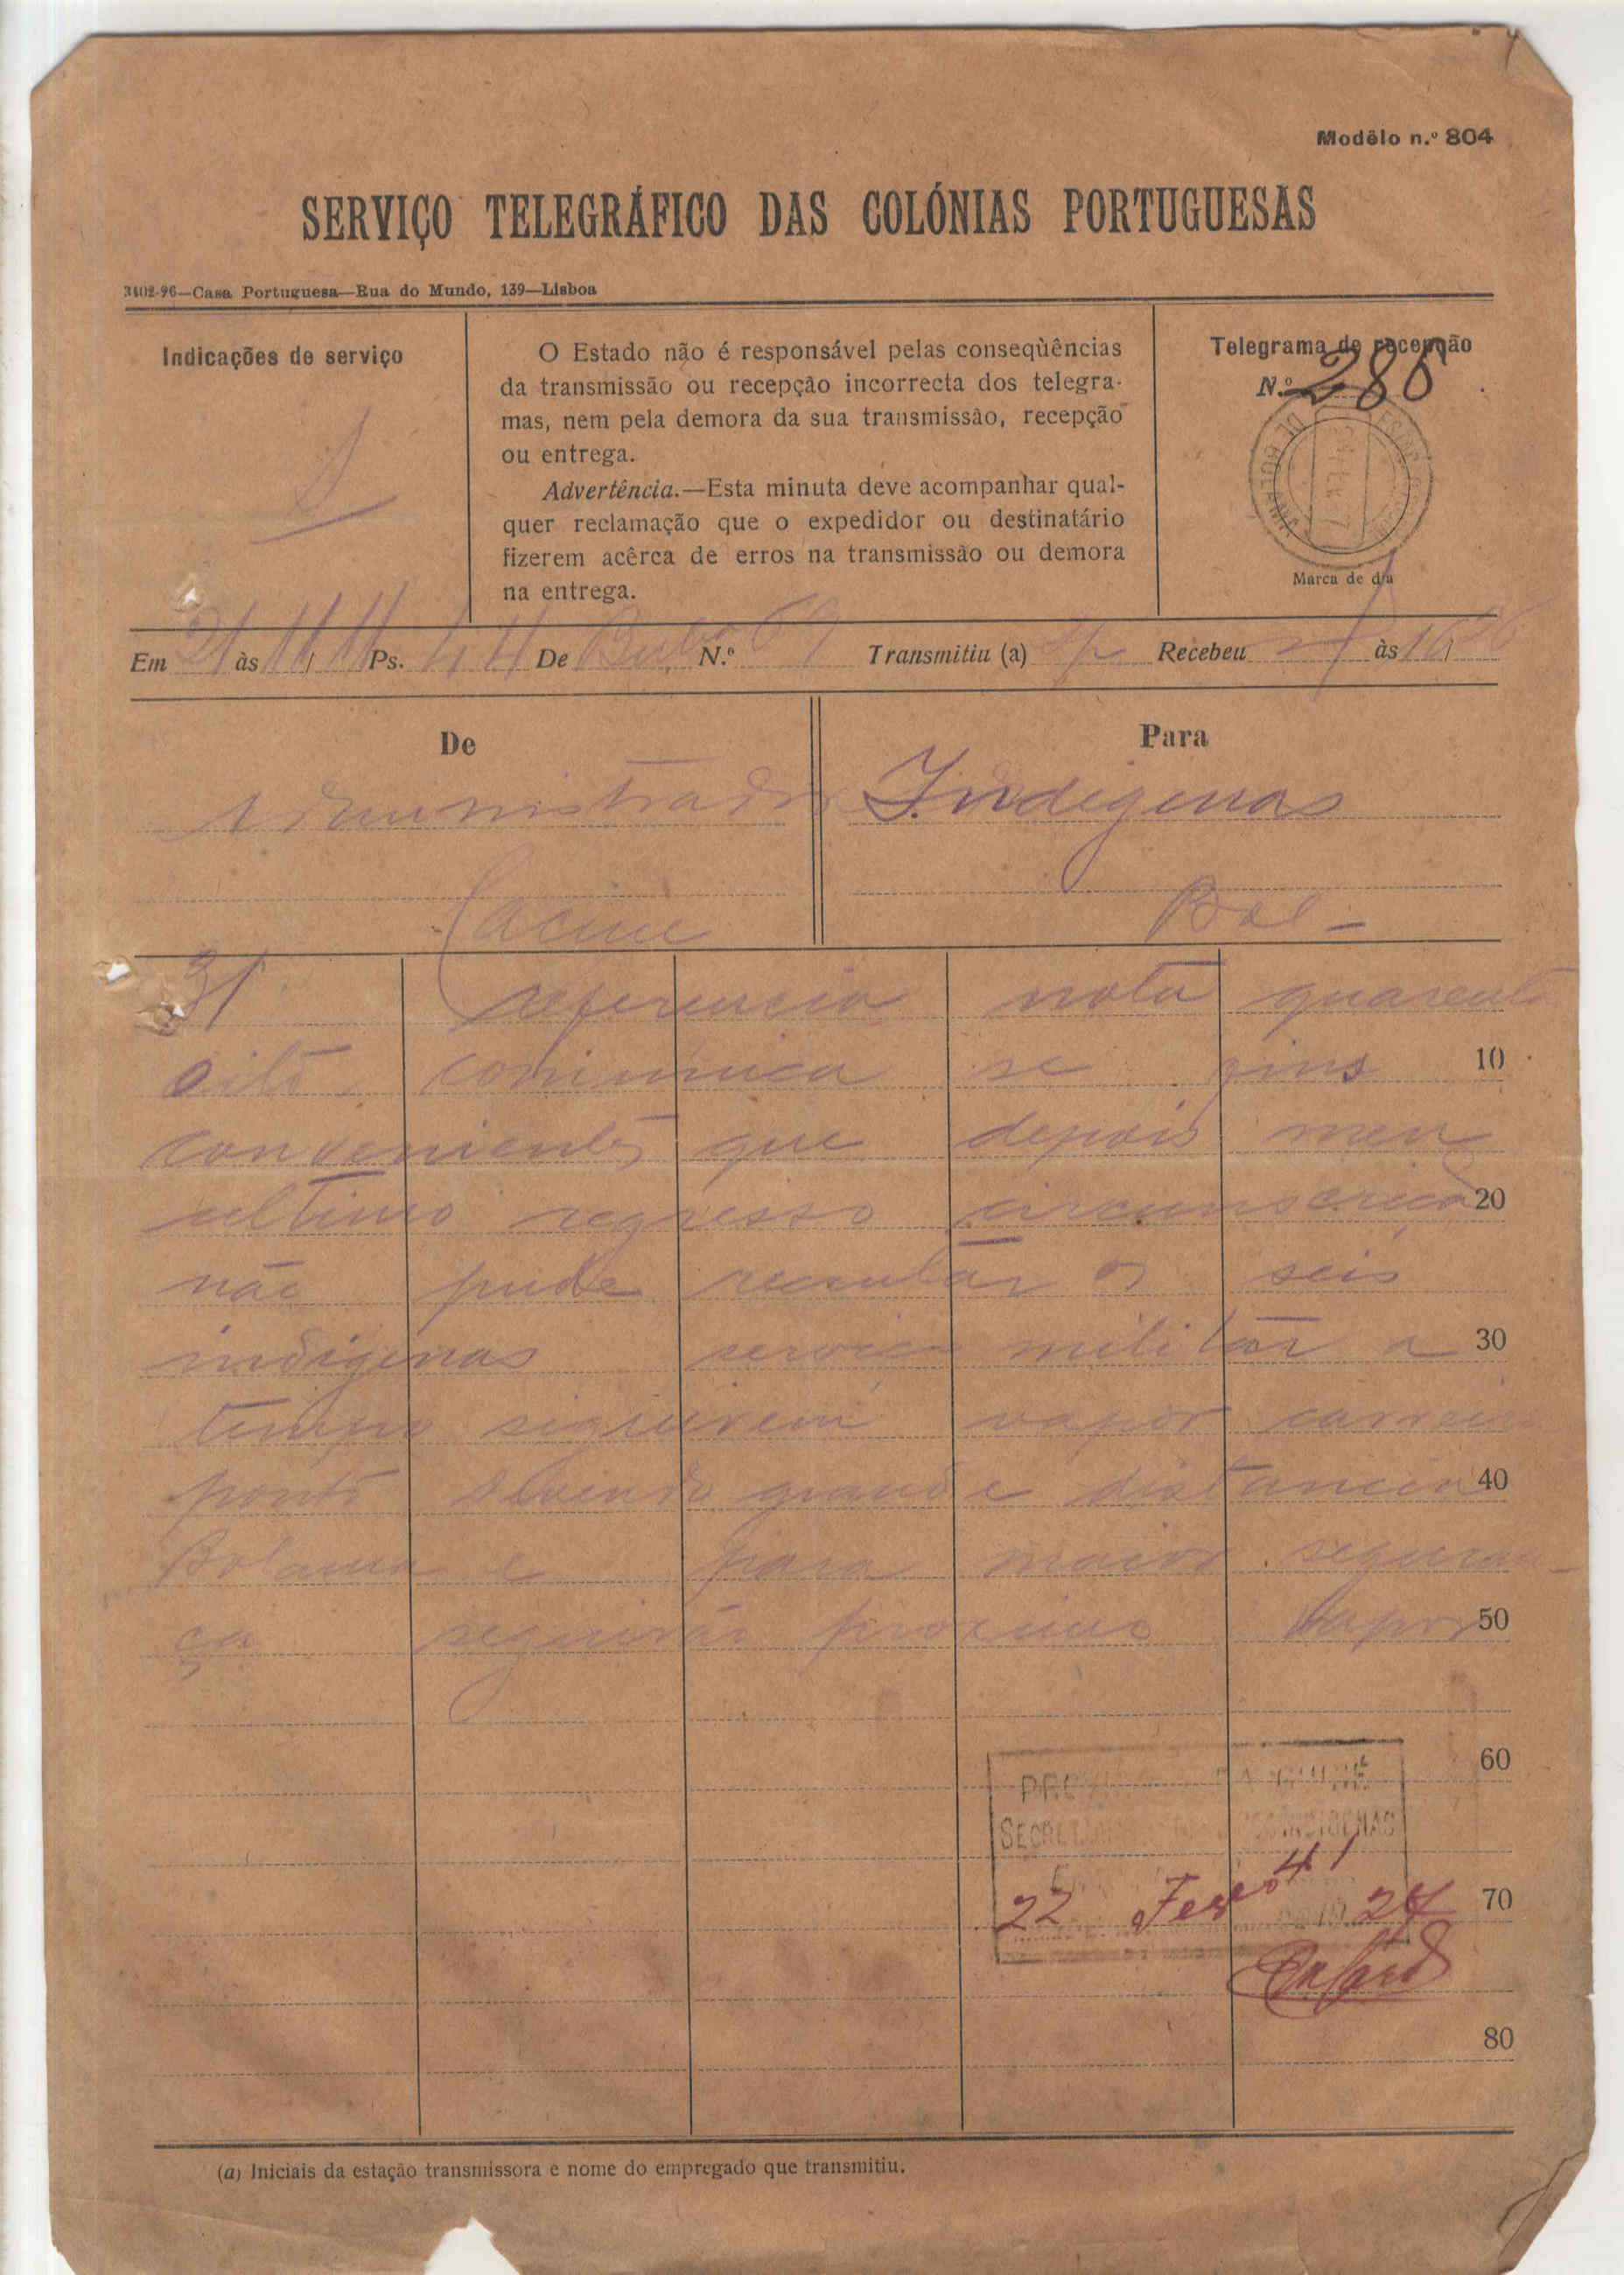 Modêlo n.º 804
SERVIÇO TELEGRÁFICO DAS COLÓNIAS PORTUGUESAS
3402-96—Casa Portuguesa—Rua do Mundo, 139—Lisboa
Indicações de serviço
O Estado não é responsável pelas conseqùências
da transmissão ou recepção incorrecta dos telegra-
mas, nem pela demora da sua transmissão, recepção
ou entrega.
Advertência.—Esta minuta deve acompanhar qual-
quer reclamação que o expedidor ou destinatário
fizerem acêrca de erros na transmissão ou demora
na entrega.
Telegrama de recepção
N.º 285
Marca de dia
Em 21 às Ps. De Buba N.º 69 Transmitiu (a) Recebeu às 16
De
Administrador
Cacine
Para
Indigenas
Bol-
31 referencia nota quarenta
oito comunica se fins 10
convenientes que depois meu
ultimo regresso circunscrição 20
não pude recrutar os seis
indigenas serviço militar a 30
tempo seguirem vapor carreira
ponto devendo grande distancia 40
Bolama e para maior seguran-
ça seguirão proximo vapor 50
60
SECRET INDIGENAS
41
22 Fevº 24
70
80
(a) Iniciais da estação transmissora e nome do empregado que transmitiu.